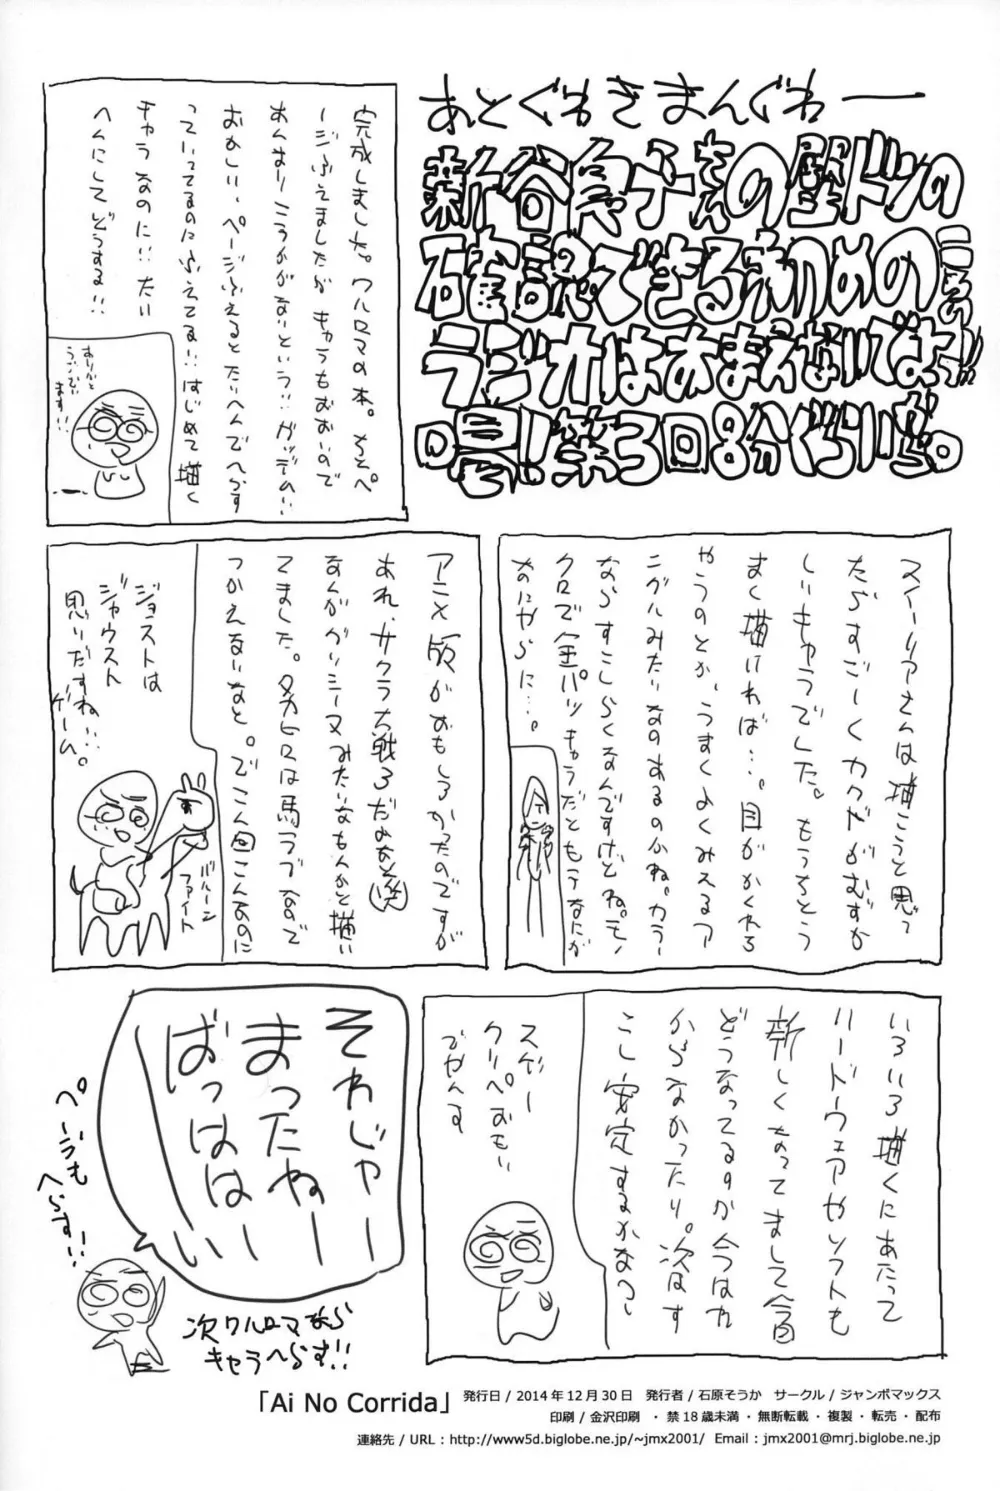 あとぐわきまんぐわー
新谷良子さんの壁ドンの
確認できる初めの
ラジオはあまえないでよっ!!
喝!第3回8分ぐらいから。
完成しました。ワルロマの本。
ージふえましたがキャラもおおいので
あんまりこうかがないという!!ガッデム!!
おかしい、ページふえるとたいへんでへらす
っていってるのにふえてる!!はじめて描く
キャラなのに!!たい
へんにしてどうする!!
ありがと
うござい
ます!!
スイーリアさんは描こうと思って
たらすごーくカクゴがむずか
しいキャラでした。もうちとう
まく描ければ…。目がかくれる
やうのとか、うまくよくみえるア
ングルみたいなのあるのかね。カラー
ならすこしらくなんですけどね。モノ
クロで金パツキャラだともうなにが
なにやらに…。
アニメ版がおもしろかったのですが
あれ、サクラ大戦3だよなと(笑)
なんかグリシーヌみたいなもんかと描い
てました。タカヒロは馬ラブなので
つかえるないなと。でこん回こんなのに
ジョストは
ジャウスト
思いだすね…
ゲーム。
バルーン
ファイト
いろいろ描くにあたって
ハードウェアやソフトも
新しくなってまして今回
どうなってるすか今はわ
からなかったり。次はす
こし安定するかなっ
スゲー
クリペおもい
でやんす
それじゃー
まったねー
ばっははーい
ページも
へらす!!
次ワルロマなら
キャラへらす!!
「Ai No Corrida」 発行日 / 2014 年 12 月 30 日　発行者 / 石原そうか　サークル / ジャンボマックス
印刷 / 金沢印刷　・禁 18 歳未満・無断転載・複製・転売・配布
連絡先 / URL：http://www5d.biglobe.ne.jp/~jmx2001/　Email：jmx2001@mrj.biglobe.ne.jp